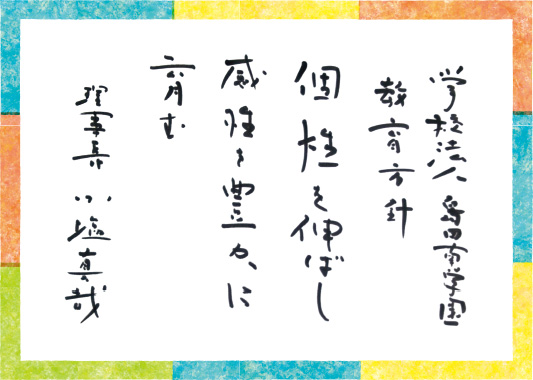 学校法人 島田南学園
教育方針
個性を伸ばし
感性を豊かに
育む
理事長 小塩真哉